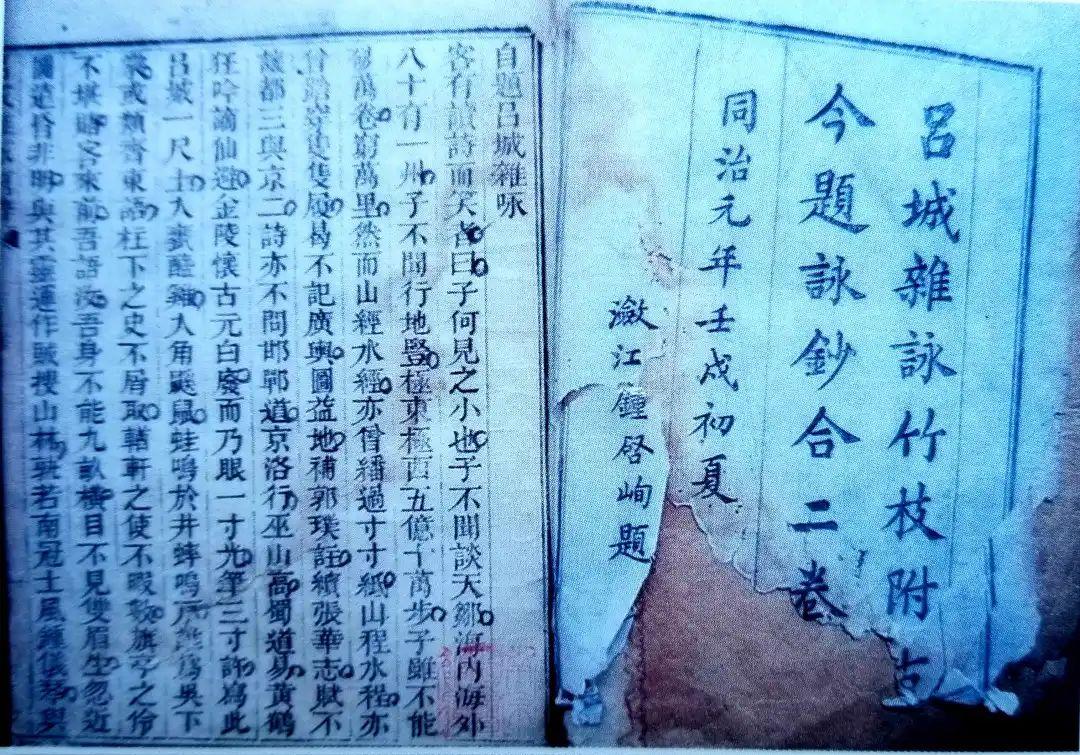 呂城雜詠竹枝附古
今題詠鈔合二卷
同治元年壬戌初夏
瀲江鍾啓峋題
自題呂城雜咏
客有讀詩而笑者曰子何見之小也子不聞談天鄒海內海外
八十有一州子不聞行地豎極東極西五億十萬步子雖不能
破萬卷窮萬里然而山經水經亦曾繙過寸寸紙山程水程亦
曾踏穿隻屐曷不記廣輿圖益地補郭璞註續張華志賦不
都三與京二詩亦不問邯鄲道京洛行巫山高蜀道易黃鶴
狂吟謫仙避金陵懷古元白廢而乃眼一寸光筆三寸許寫此
呂城一尺土人蠻醯雞犬角鼠蛙鳴於井蟀鳴戶為吳下
蒙或類齊東語柱下之史不屑取輶軒之使不暇數旗亭之伶
不堪賂客來前吾語汝吾身不能九畝橫目不見雙眉生忽近
圖遠昝非明與其靈運作賊搜山林孰若南冠土風鍾儀琴與